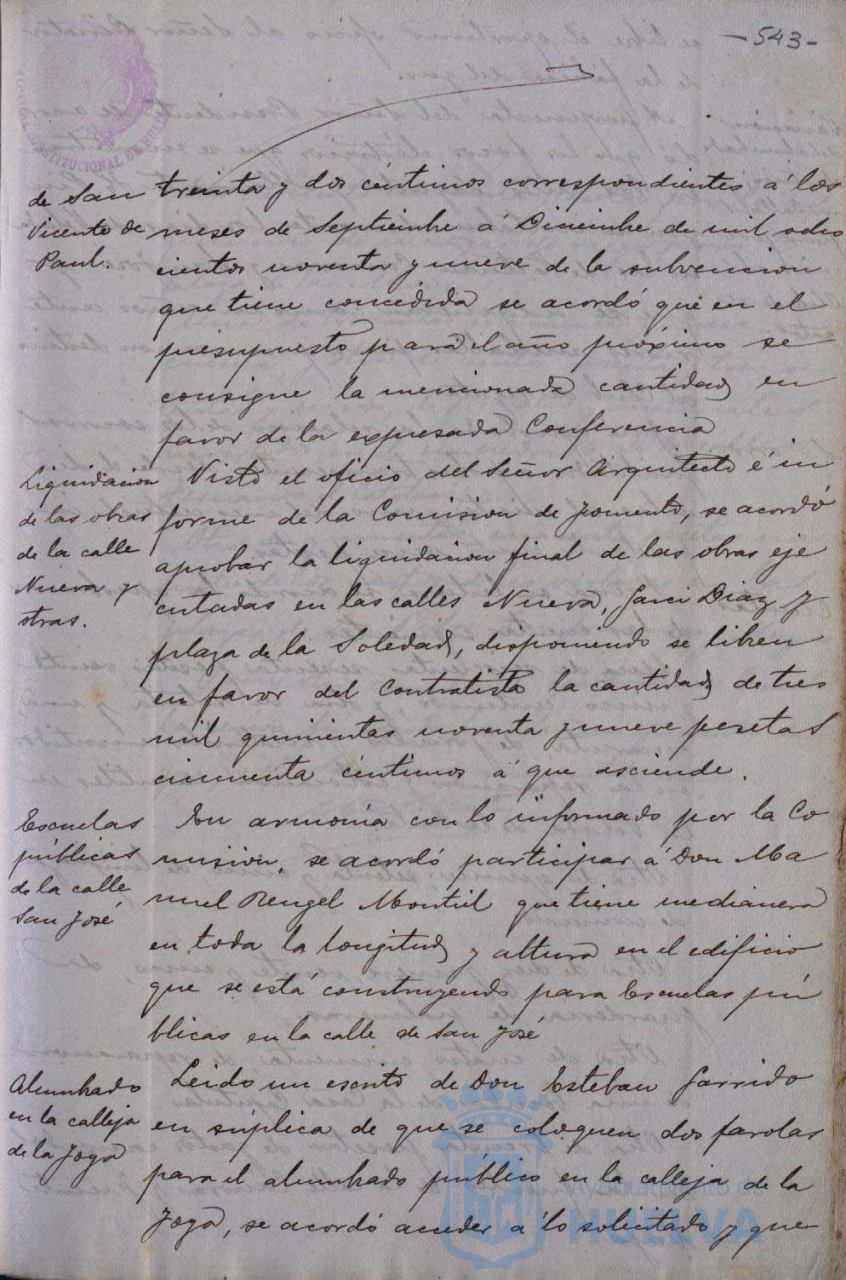 -543-
de San
Vicente de
Paul.
treinta y dos céntimos correspondientes á los
meses de Septiembre á Diciembre de mil ocho
cientos noventa y nueve de la subvencion
que tiene concedida se acordó que en el
presupuesto para el año próximo se
consigne la mencionada cantidad en
favor de la expresada Conferencia
Liquidacion
de las obras
de la calle
Nueva y
otras.
Visto el oficio del Señor Arquitecto é in
forme de la Comision de fomento, se acordó
aprobar la liquidacion final de las obras eje
cutadas en las calles Nueva, Garci Diaz y
plaza de la Soledad, disponiendo se libren
en favor del Contratista la cantidad de tres
mil quinientas noventa y nueve pesetas
cincuenta céntimos á que asciende.
Escuelas
públicas
de la calle
San José
En armonía con lo informado por la Co
mision, se acordó participar á Don Ma
nuel Rengel Montiel que tiene medianera
en toda la longitud y altura en el edificio
que se está construyendo para Escuelas pú
blicas en la calle de San José
Alumbrado
en la calleja
de la Joya
Leido un escrito de Don Esteban Garrido
en súplica de que se coloquen dos farolas
para el alumbrado público en la calleja de la
Joya, se acordó acceder á lo solicitado y que
Ayuntamiento de
HUELVA